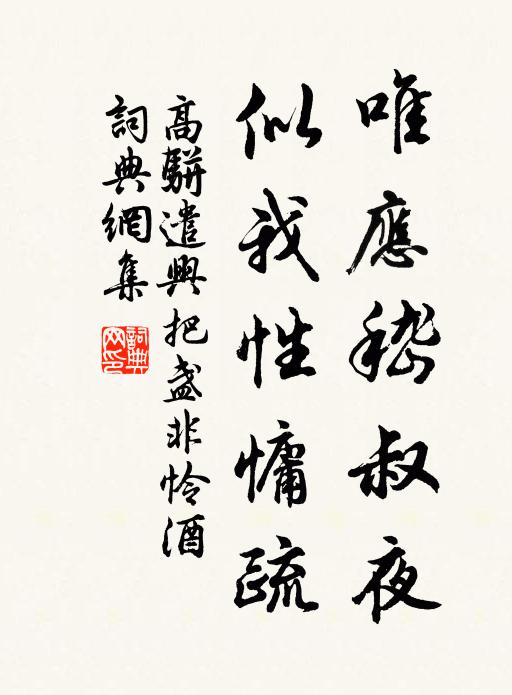 唯應嵇叔夜
似我性慵疏
高駢遣興把盞非怜酒
詞典網集
詞典网印